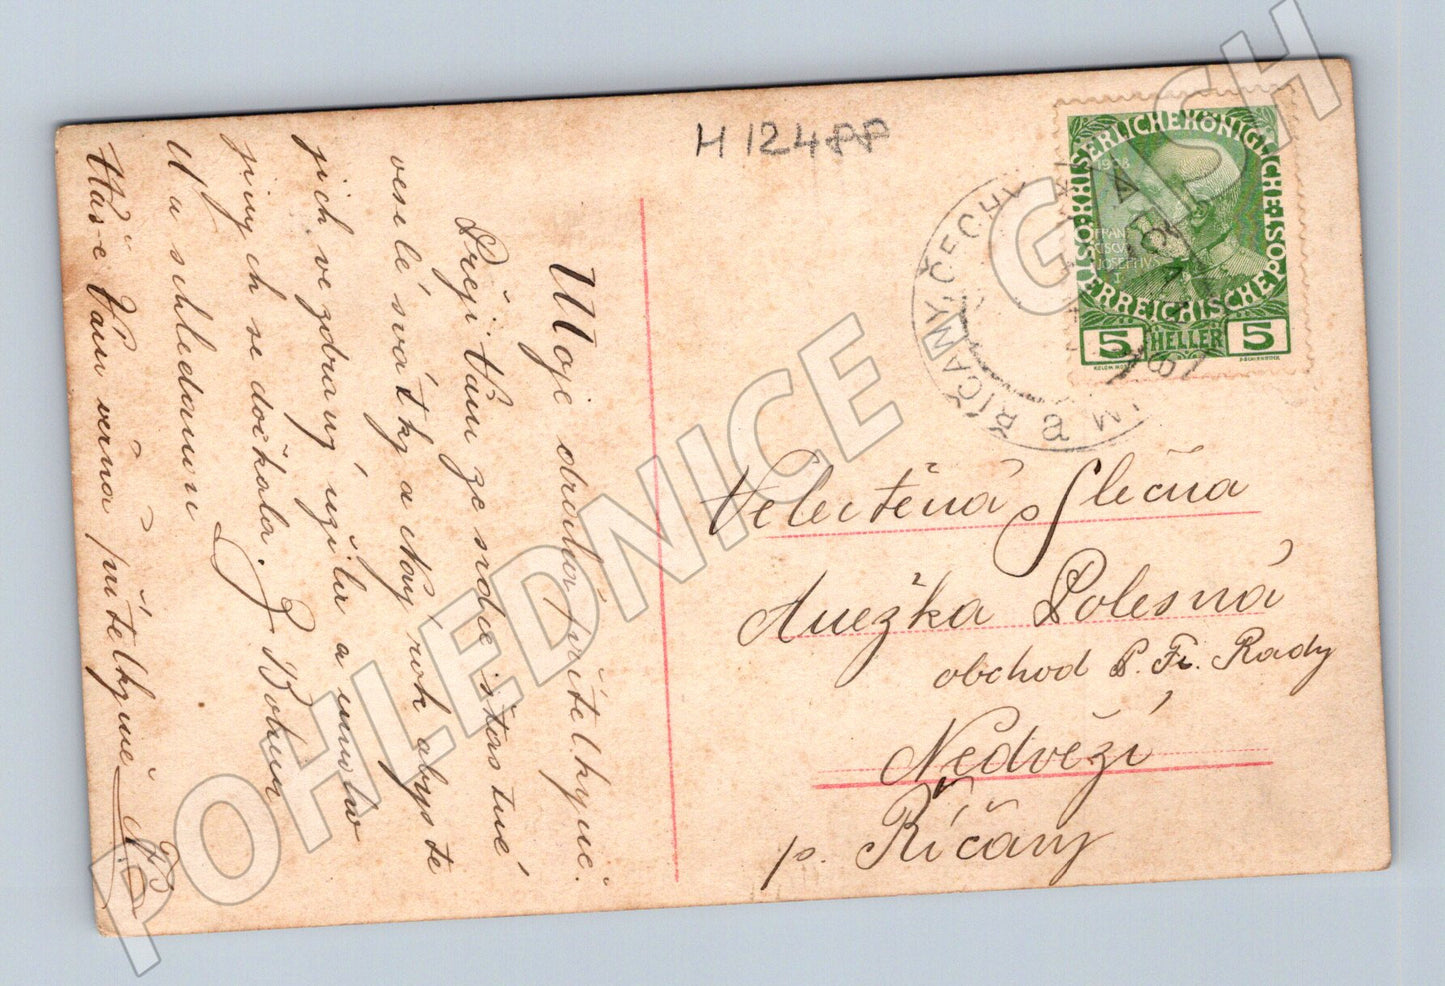 H 12488
Moje drahá přítelkyně.
Přeji Vám ze srdce šťastné
veselé svátky a Nový rok abyste
jich ve zdraví užila a mnoho
jiných se dočkala. S Bohem
Na shledanou
Vaše Vám věrná přítelkyně
KAISERLICHE KÖNIGLICHE
ÖSTERREICHISCHE POST
1908
FRAN
CISCVS
JOSEPHVS
5 HELLER 5
ŘÍČANY, ČECHY
Velectěná Slečna
Anežka Polesná
obchod P. Fr. Rady
Nedvězí
p. Říčany
POHLEDNICE GISH